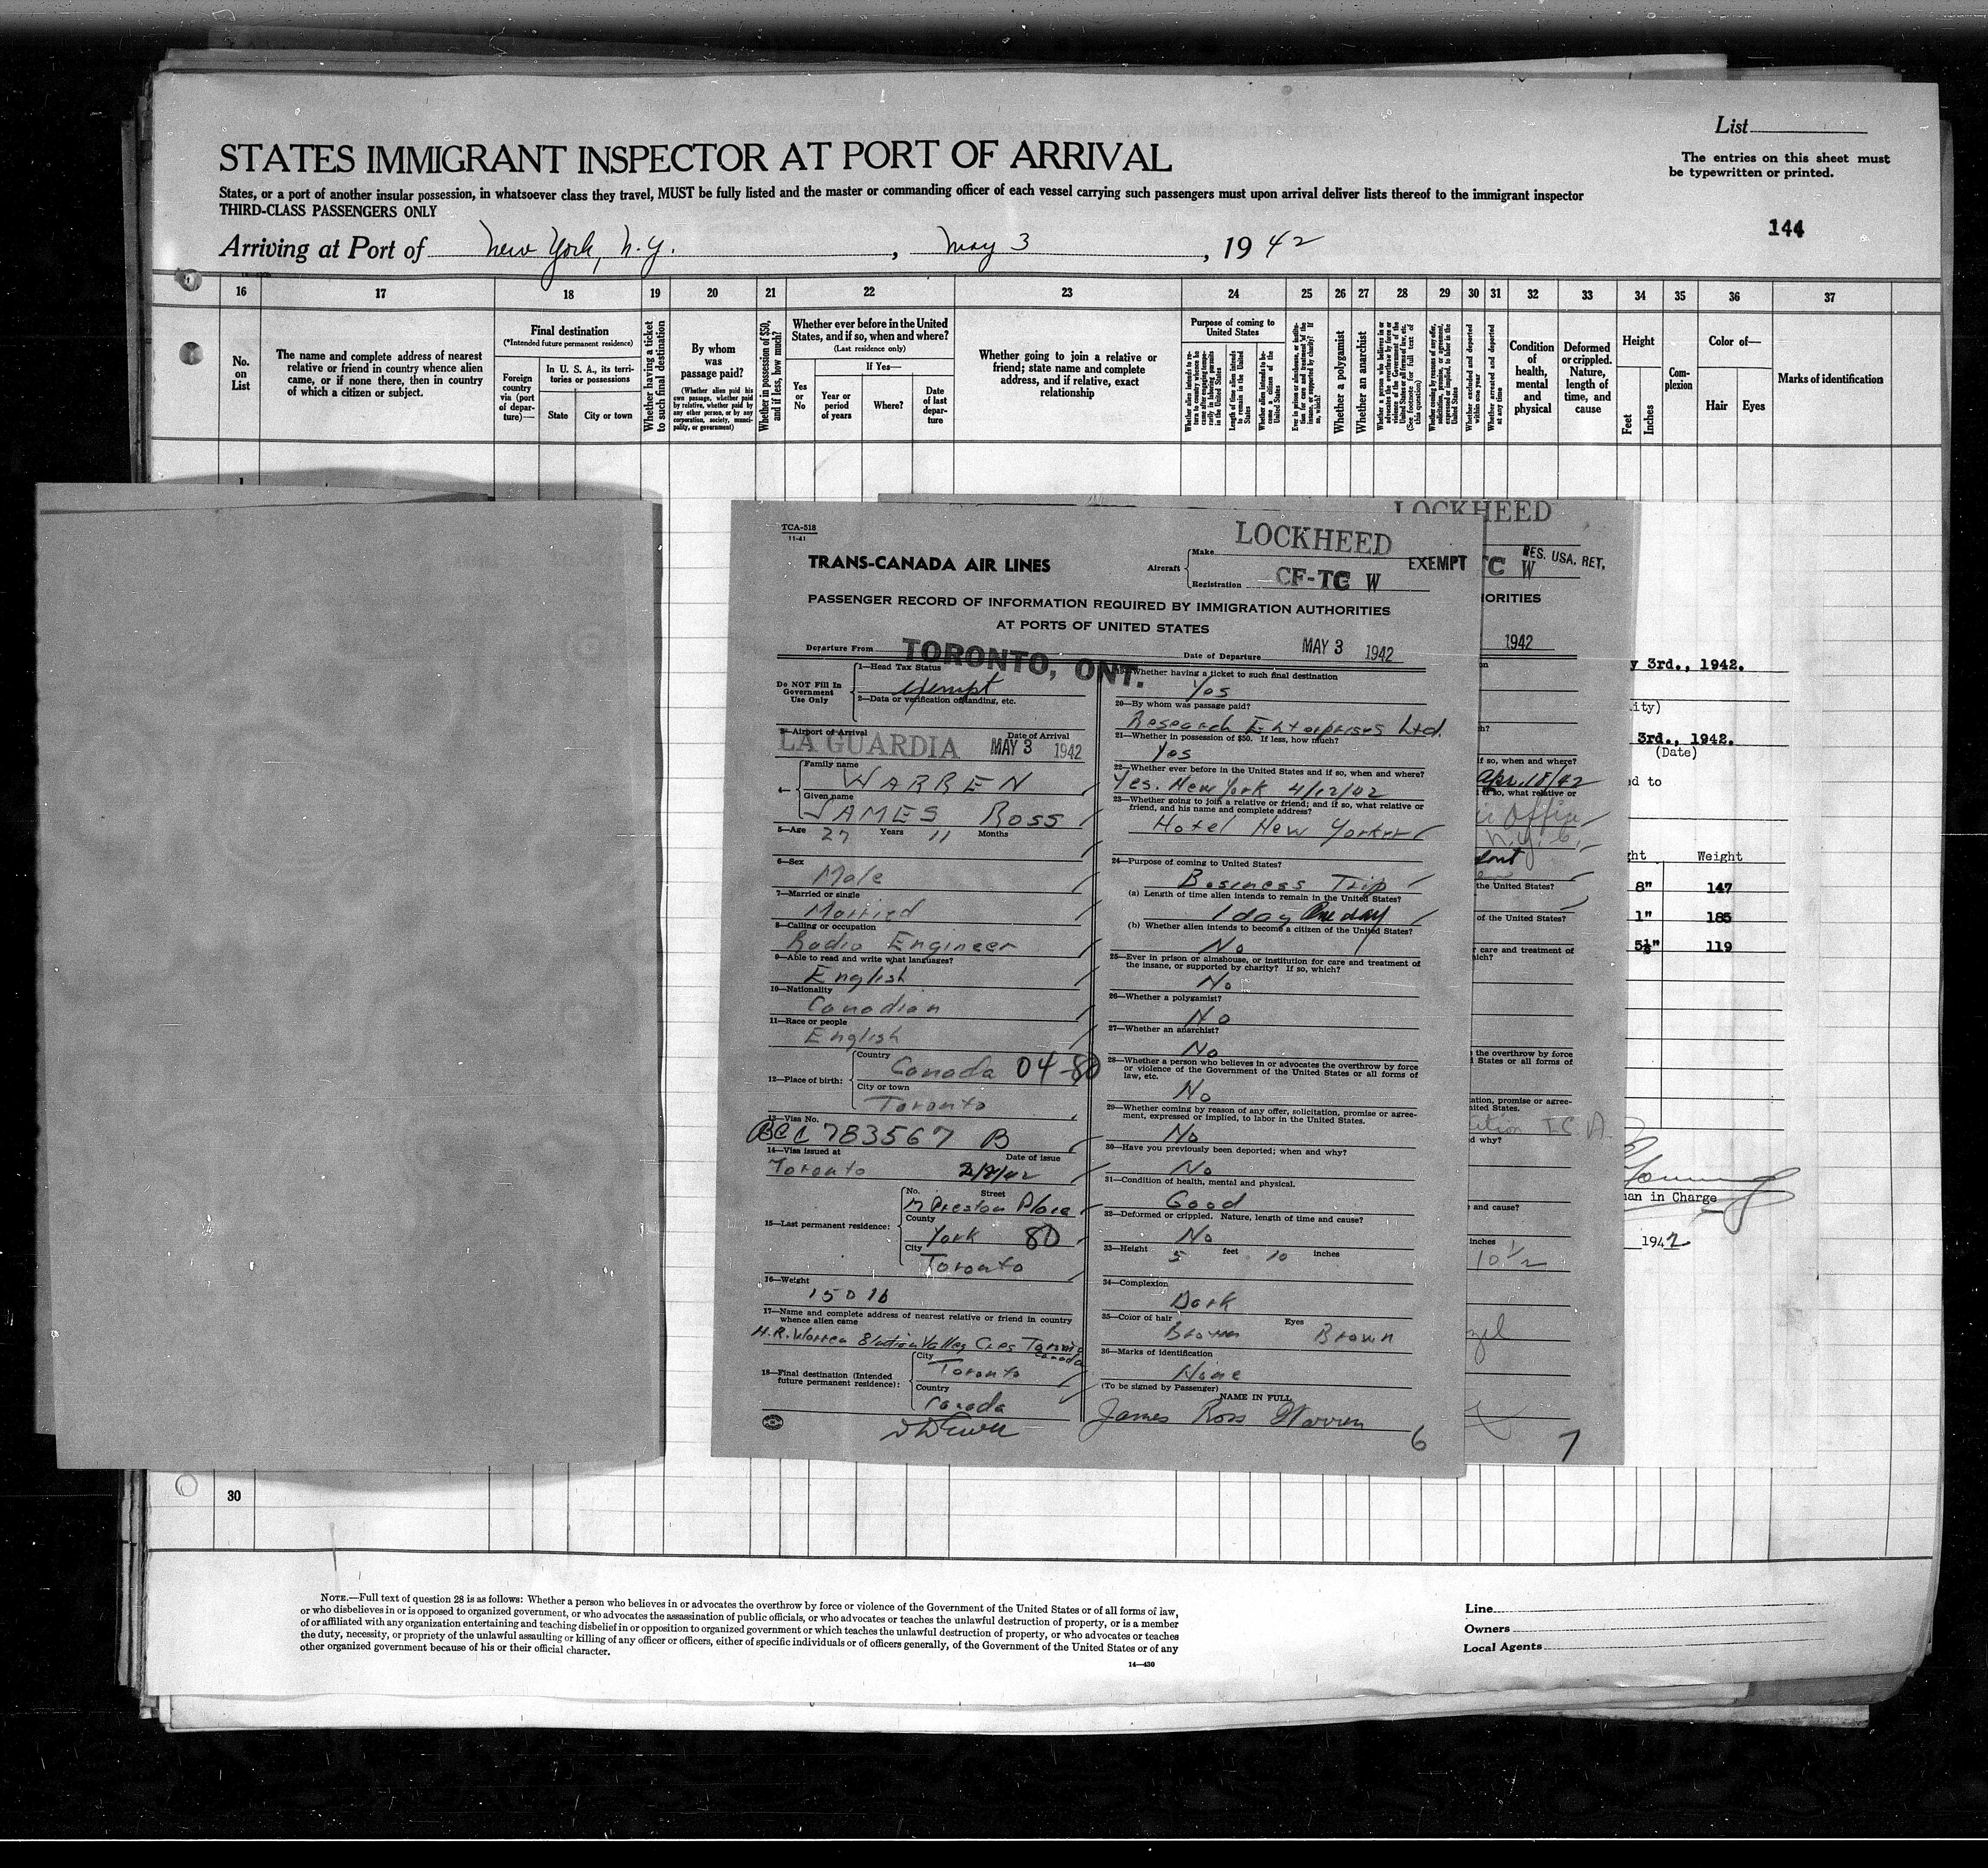 List
The entries on this sheet must
be typewritten or printed.
STATES IMMIGRANT INSPECTOR AT PORT OF ARRIVAL
States, or a port of another insular possession, in whatsoever class they travel, MUST be fully listed and the master or commanding officer of each vessel carrying such passengers must upon arrival deliver lists thereof to the immigrant inspector
THIRD-CLASS PASSENGERS ONLY
144
Arriving at Port of New York, N.Y. , May 3 , 1942
16 17 18 19 20 21 22 23 24 25 26 27 28 29 30 31 32 33 34 35 36 37
No. on List
The name and complete address of nearest
relative or friend in country whence alien
came, or if none there, then in country
of which a citizen or subject.
Final destination
(*Intended future permanent residence)
Foreign country via (port of departure)—
In U. S. A., its territories or possessions
State
City or town
Whether having a ticket to such final destination
By whom was passage paid?
(Whether alien paid his own passage, whether paid by relative, whether paid by any other person, or by any corporation, society, municipality, or government)
Whether in possession of $50, and if less, how much?
Whether ever before in the United
States, and if so, when and where?
(Last residence only)
Yes or No
If Yes—
Year or period of years
Where?
Date of last departure
Whether going to join a relative or
friend; state name and complete
address, and if relative, exact
relationship
Purpose of coming to
United States
Length of time alien intends to remain in the United States
Whether alien intends to become a citizen of the United States
Whether a polygamist
Whether an anarchist
Whether excluded and deported within one year
Whether arrested and deported at any time
Condition of health, mental and physical
Deformed or crippled. Nature, length of time, and cause
Height
Feet
Inches
Complexion
Color of—
Hair
Eyes
Marks of identification
TCA-518
11-41
TRANS-CANADA AIR LINES
Aircraft
Make LOCKHEED
Registration CF-TC W
EXEMPT
PASSENGER RECORD OF INFORMATION REQUIRED BY IMMIGRATION AUTHORITIES
AT PORTS OF UNITED STATES
Departure From TORONTO, ONT. Date of Departure MAY 3 1942
Do NOT Fill In
Government
Use Only
1—Head Tax Status
exempt
2—Data or verification of landing, etc.
3—Airport of Arrival Date of Arrival
LA GUARDIA MAY 3 1942
4— Family name
WARREN
Given name
JAMES Ross
5—Age 27 Years 11 Months
6—Sex
Male
7—Married or single
Married
8—Calling or occupation
Radio Engineer
9—Able to read and write what languages?
English
10—Nationality
Canadian
11—Race or people
English
12—Place of birth:
Country
Canada 04-80
City or town
Toronto
13—Visa No.
BCC 783567 B
14—Visa issued at Date of issue
Toronto
15—Last permanent residence:
No. Street
Preston Place
County
York 80
City
Toronto
16—Weight
150 lb
17—Name and complete address of nearest relative or friend in country
whence alien came
H.R. Warren Valley Cres Toronto
Canada
18—Final destination (Intended
future permanent residence):
City
Toronto
Country
Canada
19—Whether having a ticket to such final destination
Yes
20—By whom was passage paid?
Research Enterprises Ltd.
21—Whether in possession of $50. If less, how much?
Yes
22—Whether ever before in the United States and if so, when and where?
Yes. New York 4/12/42
23—Whether going to join a relative or friend; and if so, what relative or
friend, and his name and complete address?
Hotel New Yorker
24—Purpose of coming to United States?
Business Trip
(a) Length of time alien intends to remain in the United States?
1 day One day
(b) Whether alien intends to become a citizen of the United States?
No
25—Ever in prison or almshouse, or institution for care and treatment of
the insane, or supported by charity? If so, which?
No
26—Whether a polygamist?
No
27—Whether an anarchist?
No
28—Whether a person who believes in or advocates the overthrow by force
or violence of the Government of the United States or all forms of
law, etc.
No
29—Whether coming by reason of any offer, solicitation, promise or agree-
ment, expressed or implied, to labor in the United States.
No
30—Have you previously been deported; when and why?
No
31—Condition of health, mental and physical.
Good
32—Deformed or crippled. Nature, length of time and cause?
No
33—Height 5 feet 10 inches
34—Complexion
Dark
35—Color of hair Eyes
Brown Brown
36—Marks of identification
None
(To be signed by Passenger)
NAME IN FULL
James Ross Warren
6
LOCKHEED
TC W
RES. USA, RET.
ORITIES
1942
if so, when and where?
Apr. 18/42
if so, what relative or
N.Y.C.
the United States?
of the United States?
care and treatment of
the overthrow by force
States or all forms of
ation, promise or agree-
nited States.
d why?
and cause?
inches
10 1/2
7
y 3rd., 1942.
ity)
3rd., 1942.
(Date)
d to
ght Weight
8" 147
1" 185
5½" 119
an in Charge
1942
30
NOTE.—Full text of question 28 is as follows: Whether a person who believes in or advocates the overthrow by force or violence of the Government of the United States or of all forms of law,
or who disbelieves in or is opposed to organized government, or who advocates the assassination of public officials, or who advocates or teaches the unlawful destruction of property, or is a member
of or affiliated with any organization entertaining and teaching disbelief in or opposition to organized government or which teaches the unlawful destruction of property, or who advocates or teaches
the duty, necessity, or propriety of the unlawful assaulting or killing of any officer or officers, either of specific individuals or of officers generally, of the Government of the United States or of any
other organized government because of his or their official character.
14—430
Line
Owners
Local Agents